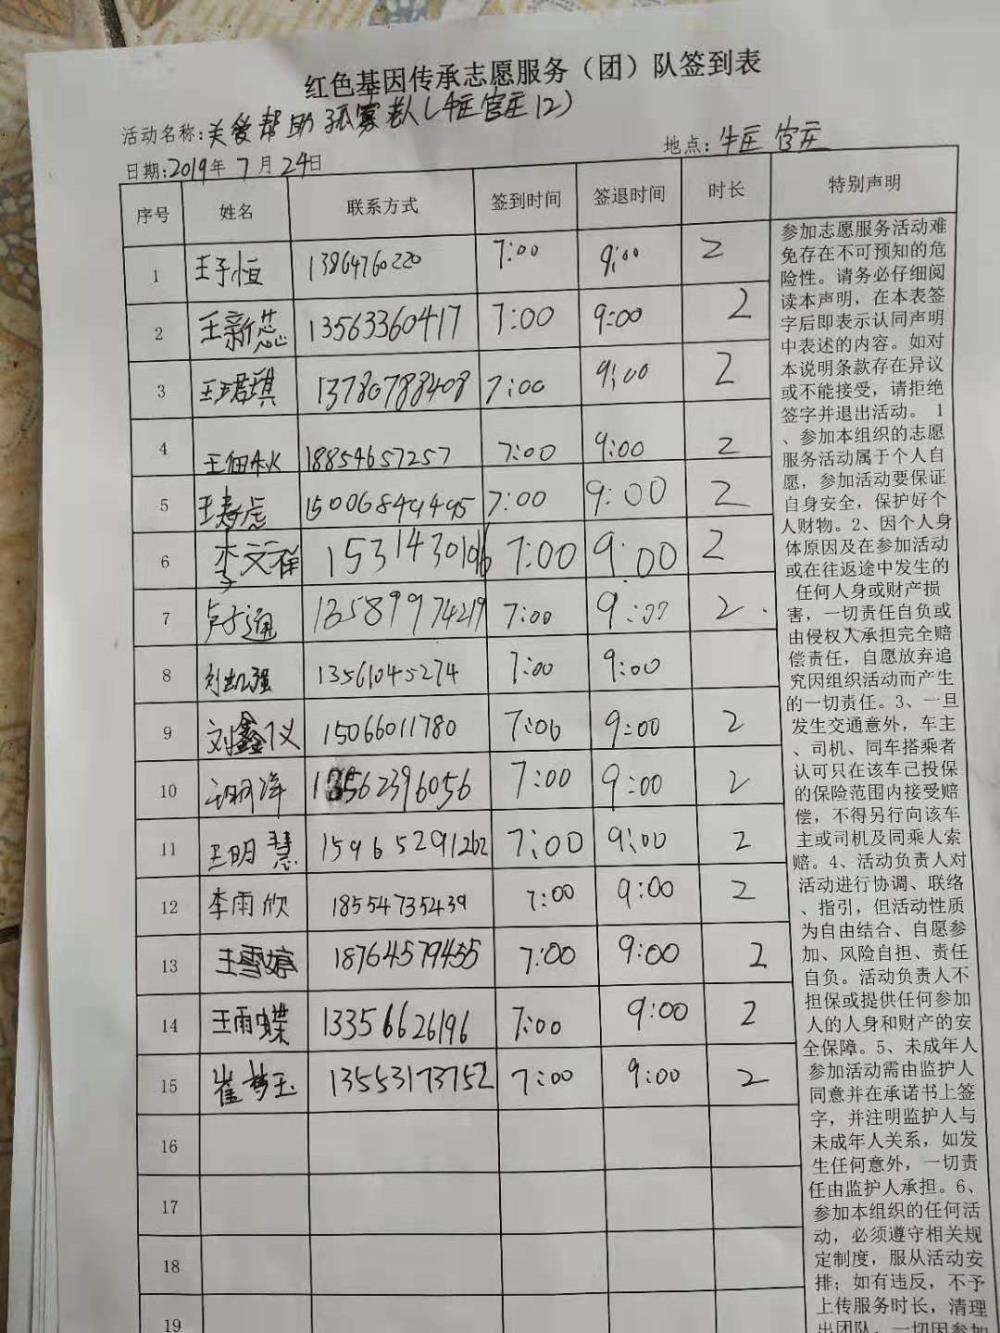 红色基因传承志愿服务（团）队签到表
活动名称:关爱帮助孤寡老人(牛庄官庄12)
日期:2019年7月24日 地点:牛庄官庄
序号 姓名 联系方式 签到时间 签退时间 时长 特别声明
1 王子恒 13864760220 7:00 9:00 2
2 王新蕊 13563360417 7:00 9:00 2
3 王珺琪 13780788408 7:00 9:00 2
4 王佃秋 18854657257 7:00 9:00 2
5 王寿虎 15006849495 7:00 9:00 2
6 李文祥 15314430196 7:00 9:00 2
7 卢子通 13589974219 7:00 9:00 2
8 刘凯强 13561045274 7:00 9:00
9 刘鑫仪 15066011780 7:00 9:00 2
10 13562396056 7:00 9:00 2
11 王明慧 15965291262 7:00 9:00 2
12 李雨欣 18554735439 7:00 9:00 2
13 王雪婷 18764579455 7:00 9:00 2
14 王雨蝶 13356626196 7:00 9:00 2
15 崔梦玉 13553173752 7:00 9:00 2
16
17
18
19
参加志愿服务活动难
免存在不可预知的危
险性。请务必仔细阅
读本声明，在本表签
字后即表示认同声明
中表述的内容。如对
本说明条款存在异议
或不能接受，请拒绝
签字并退出活动。1
、参加本组织的志愿
服务活动属于个人自
愿，参加活动要保证
自身安全，保护好个
人财物。2、因个人身
体原因及在参加活动
或在往返途中发生的
任何人身或财产损
害，一切责任自负或
由侵权人承担完全赔
偿责任，自愿放弃追
究因组织活动而产生
的一切责任。3、一旦
发生交通意外，车主
、司机、同车搭乘者
认可只在该车已投保
的保险范围内接受赔
偿，不得另行向该车
主或司机及同乘人索
赔。4、活动负责人对
活动进行协调、联络
、指引，但活动性质
为自由结合、自愿参
加、风险自担、责任
自负。活动负责人不
担保或提供任何参加
人的人身和财产的安
全保障。5、未成年人
参加活动需由监护人
同意并在承诺书上签
字，并注明监护人与
未成年人关系，如发
生任何意外，一切责
任由监护人承担。6、
参加本组织的任何活
动，必须遵守相关规
定制度，服从活动安
排；如有违反，不予
上传服务时长，清理
出团队，一切因参加